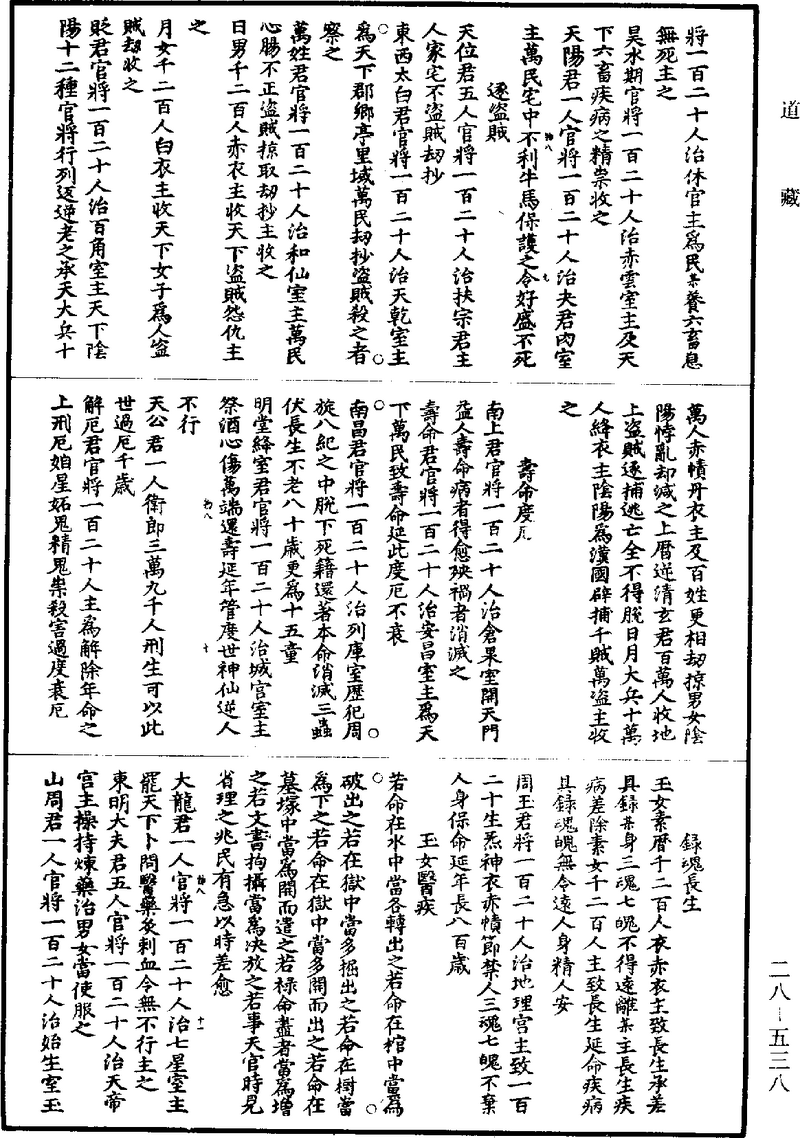 道藏
將一百二十人治休官主為民某養六畜息
無死主之
昊水期官將一百二十人治赤雲室主及天
下六畜疾病之精祟收之
天陽君一人官將一百二十人治夬君內室
主萬民宅中不利牛馬保護之令好盛不死
逐盜賊
天位君五人官將一百二十人治扶宗君主
人家宅不盜賊劫抄
東西太白君官將一百二十人治天乾室主
為天下郡鄉亭里域萬民劫抄盜賊殺之者
察之
萬姓君官將一百二十人治和仙室主萬民
心腸不正盜賊掠取劫抄主收之
日男千二百人赤衣主收天下盜賊怨仇主
之
月女千二百人白衣主收天下女子為人盜
賊劫收之
貶君官將一百二十人治百角室主天下陰
陽十二種官將行列返逆老之承天大兵十
萬人赤幘丹衣主及百姓更相劫掠男女陰
陽悖亂却滅之上曆逆清玄君百萬人收地
上盜賊逐捕逃亡全不得脫日月大兵十萬
人絳衣主陰陽為漢國辟捕千賊萬盜主收
之
壽命度厄
南上君官將一百二十人治倉果室開天門
益人壽命病者得愈殃禍者消滅之
壽命君官將一百二十人治安昌室主為天
下萬民致壽命延此度厄不衰
南昌君官將一百二十人治列庫室歷犯周
旋八紀之中脫下死籍還著本命消滅三蟲
伏長生不老八十歲更為十五童
明堂絳室君官將一百二十人治城官室主
祭酒心傷萬端還壽延年管度世神仙逆人
不行
天公君一人衛郎三萬九千人刑生可以此
世過厄千歲
解厄君官將一百二十人主為解除年命之
上刑厄姎星妬鬼精鬼祟殺害過度衰厄
錄魂長生
玉女素曆千二百人衣赤衣主致長生承差
具錄某身三魂七魄不得遠離某主長生疾
病差除素女千二百人主致長生延命疾病
具錄魂魄無令遠人身精人安
周玉君將一百二十人治地理宮主致一百
二十生炁神衣赤幘節禁人三魂七魄不棄
人身保命延年長八百歲
玉女醫疾
若命在水中當各轉出之若命在棺中當為
破出之若在獄中當多掘出之若命在樹當
為下之若命在獄中當多開而出之若命在
墓塚中當為開而遣之若祿命盡者當為增
之若文書拘攝當為决放之若事天官時見
省理之兆民有急以時差愈
大龍君一人官將一百二十人治七星室主
罷天下卜問醫藥灸刺血令無不行主之
東明大夫君五人官將一百二十人治天帝
宮主操持煉藥治男女當使服之
山周君一人官將一百二十人治始生室玉
二八—五三八